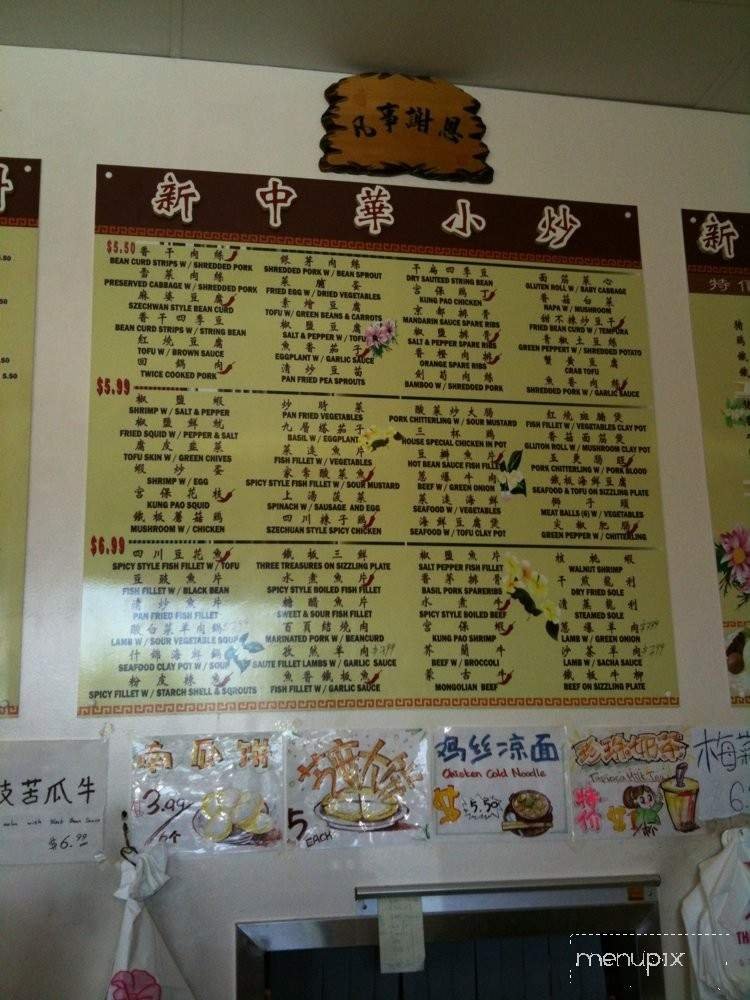 凡事謝恩
新中華小炒
$5.50
香干肉絲
BEAN CURD STRIPS W/ SHREDDED PORK
雪菜肉絲
PRESERVED CABBAGE W/ SHREDDED PORK
麻婆豆腐
SZECHWAN STYLE BEAN CURD
香干四季豆
BEAN CURD STRIPS W/ STRING BEAN
紅燒豆腐
TOFU W/ BROWN SAUCE
回鍋肉
TWICE COOKED PORK
銀芽肉絲
SHREDDED PORK W/ BEAN SPROUT
菜脯蛋
FRIED EGG W/ DRIED VEGETABLES
素燴豆腐
TOFU W/ GREEN BEANS & CARROTS
椒鹽豆腐
SALT & PEPPER W/ TOFU
魚香茄子
EGGPLANT W/ GARLIC SAUCE
清炒豆苗
PAN FRIED PEA SPROUTS
干扁四季豆
DRY SAUTEED STRING BEAN
宮保雞丁
KUNG PAO CHICKEN
京都排骨
MANDARIN SAUCE SPARE RIBS
椒鹽排骨
SALT & PEPPER SPARE RIBS
香橙肉排
ORANGE SPARE RIBS
劍筍肉絲
BAMBOO W/ SHREDDED PORK
面筋菜心
GLUTEN ROLL W/ BABY CABBAGE
香菇白菜
NAPA W/ MUSHROOM
甜不辣炒豆干
FRIED BEAN CURD W/ TEMPURA
青椒土豆絲
GREEN PEPPERT W/ SHREDDED POTATO
蟹黃豆腐
CRAB TOFU
魚香肉絲
SHREDDED PORK W/ GARLIC SAUCE
$5.99
椒鹽蝦
SHRIMP W/ SALT & PEPPER
椒鹽鮮魷
FRIED SQUID W/ PEPPER & SALT
腐皮韭菜
TOFU SKIN W/ GREEN CHIVES
蝦炒蛋
SHRIMP W/ EGG
宮保花枝
KUNG PAO SQUID
鐵板蘑菇雞
MUSHROOM W/ CHICKEN
炒時菜
PAN FRIED VEGETABLES
九層塔茄子
BASIL W/ EGGPLANT
菜遠魚片
FISH FILLET W/ VEGETABLES
家常酸菜魚
SPICY STYLE FISH FILLET W/ SOUR MUSTARD
上湯菠菜
SPINACH W/ SAUSAGE AND EGG
四川辣子雞
SZECHUAN STYLE SPICY CHICKEN
酸菜炒大腸
PORK CHITTERLING W/ SOUR MUSTARD
三杯雞
HOUSE SPECIAL CHICKEN IN POT
豆瓣魚片
HOT BEAN SAUCE FISH FILLET
蔥爆牛肉
BEEF W/ GREEN ONION
菜遠海鮮
SEAFOOD W/ VEGETABLES
海鮮豆腐煲
SEAFOOD W/ TOFU CLAY POT
紅燒斑腩煲
FISH FILLET W/ VEGETABLES CLAY POT
香菇面筋煲
GLUTON ROLL W/ MUSHROOM CLAY POT
五更腸旺
PORK CHITTERLING W/ PORK BLOOD
鐵板海鮮豆腐
SEAFOOD & TOFU ON SIZZLING PLATE
獅子頭
MEAT BALLS (6) W/ VEGETABLES
尖椒肥腸
GREEN PEPPER W/ CHITTERLING
$6.99
四川豆花魚
SPICY STYLE FISH FILLET W/ TOFU
豆豉魚片
FISH FILLET W/ BLACK BEAN
清炒魚片
PAN FRIED FISH FILLET
酸白菜羊肉鍋
LAMB W/ SOUR VEGETABLE SOUP
什錦海鮮鍋
SEAFOOD CLAY POT W/ SOUP
粉皮辣魚
SPICY FILLET W/ STARCH SHELL & SQROUTS
鐵板三鮮
THREE TREASURES ON SIZZLING PLATE
水煮魚片
SPICY STYLE BOILED FISH FILLET
糖醋魚片
SWEET & SOUR FISH FILLET
百頁結燒肉
MARINATED PORK W/ BEANCURD
孜然羊肉
SAUTE FILLET LAMBS W/ GARLIC SAUCE
魚香鐵板魚
FISH FILLET W/ GARLIC SAUCE
椒鹽魚片
SALT PEPPER FISH FILLET
香茅排骨
BASIL PORK SPARERIBS
水煮牛
SPICY STYLE BOILED BEEF
宮保蝦
KUNG PAO SHRIMP
芥蘭牛
BEEF W/ BROCCOLI
蒙古牛
MONGOLIAN BEEF
核桃蝦
WALNUT SHRIMP
干煎龍利
DRY FRIED SOLE
清蒸龍利
STEAMED SOLE
蔥爆羊肉
LAMB W/ GREEN ONION
沙茶羊肉
LAMB W/ SACHA SAUCE
鐵板牛柳
BEEF ON SIZZLING PLATE
新
特價
苦瓜牛
$6.99
南瓜饼
3.99
5个
5
EACH
鸡丝凉面
Chicken Cold Noodle
$5.50
珍珠奶茶
Tapioca Milk Tea
特价
梅菜
menupix